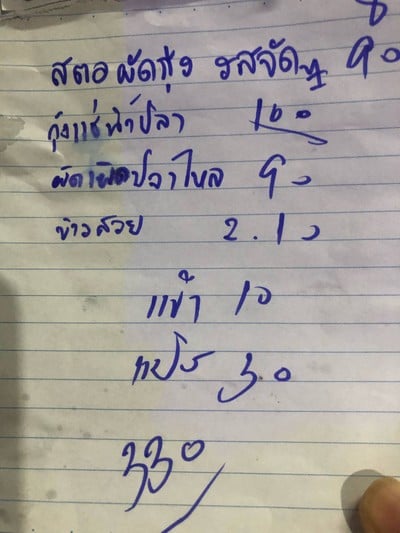 สตอผัดกุ้ง รสจัดๆ 90
กุ้งแช่น้ำปลา 100
ผัดเผ็ดปลาไหล 90
ข้าวสวย 2. 10
แข้ง 10
แปร 30
330